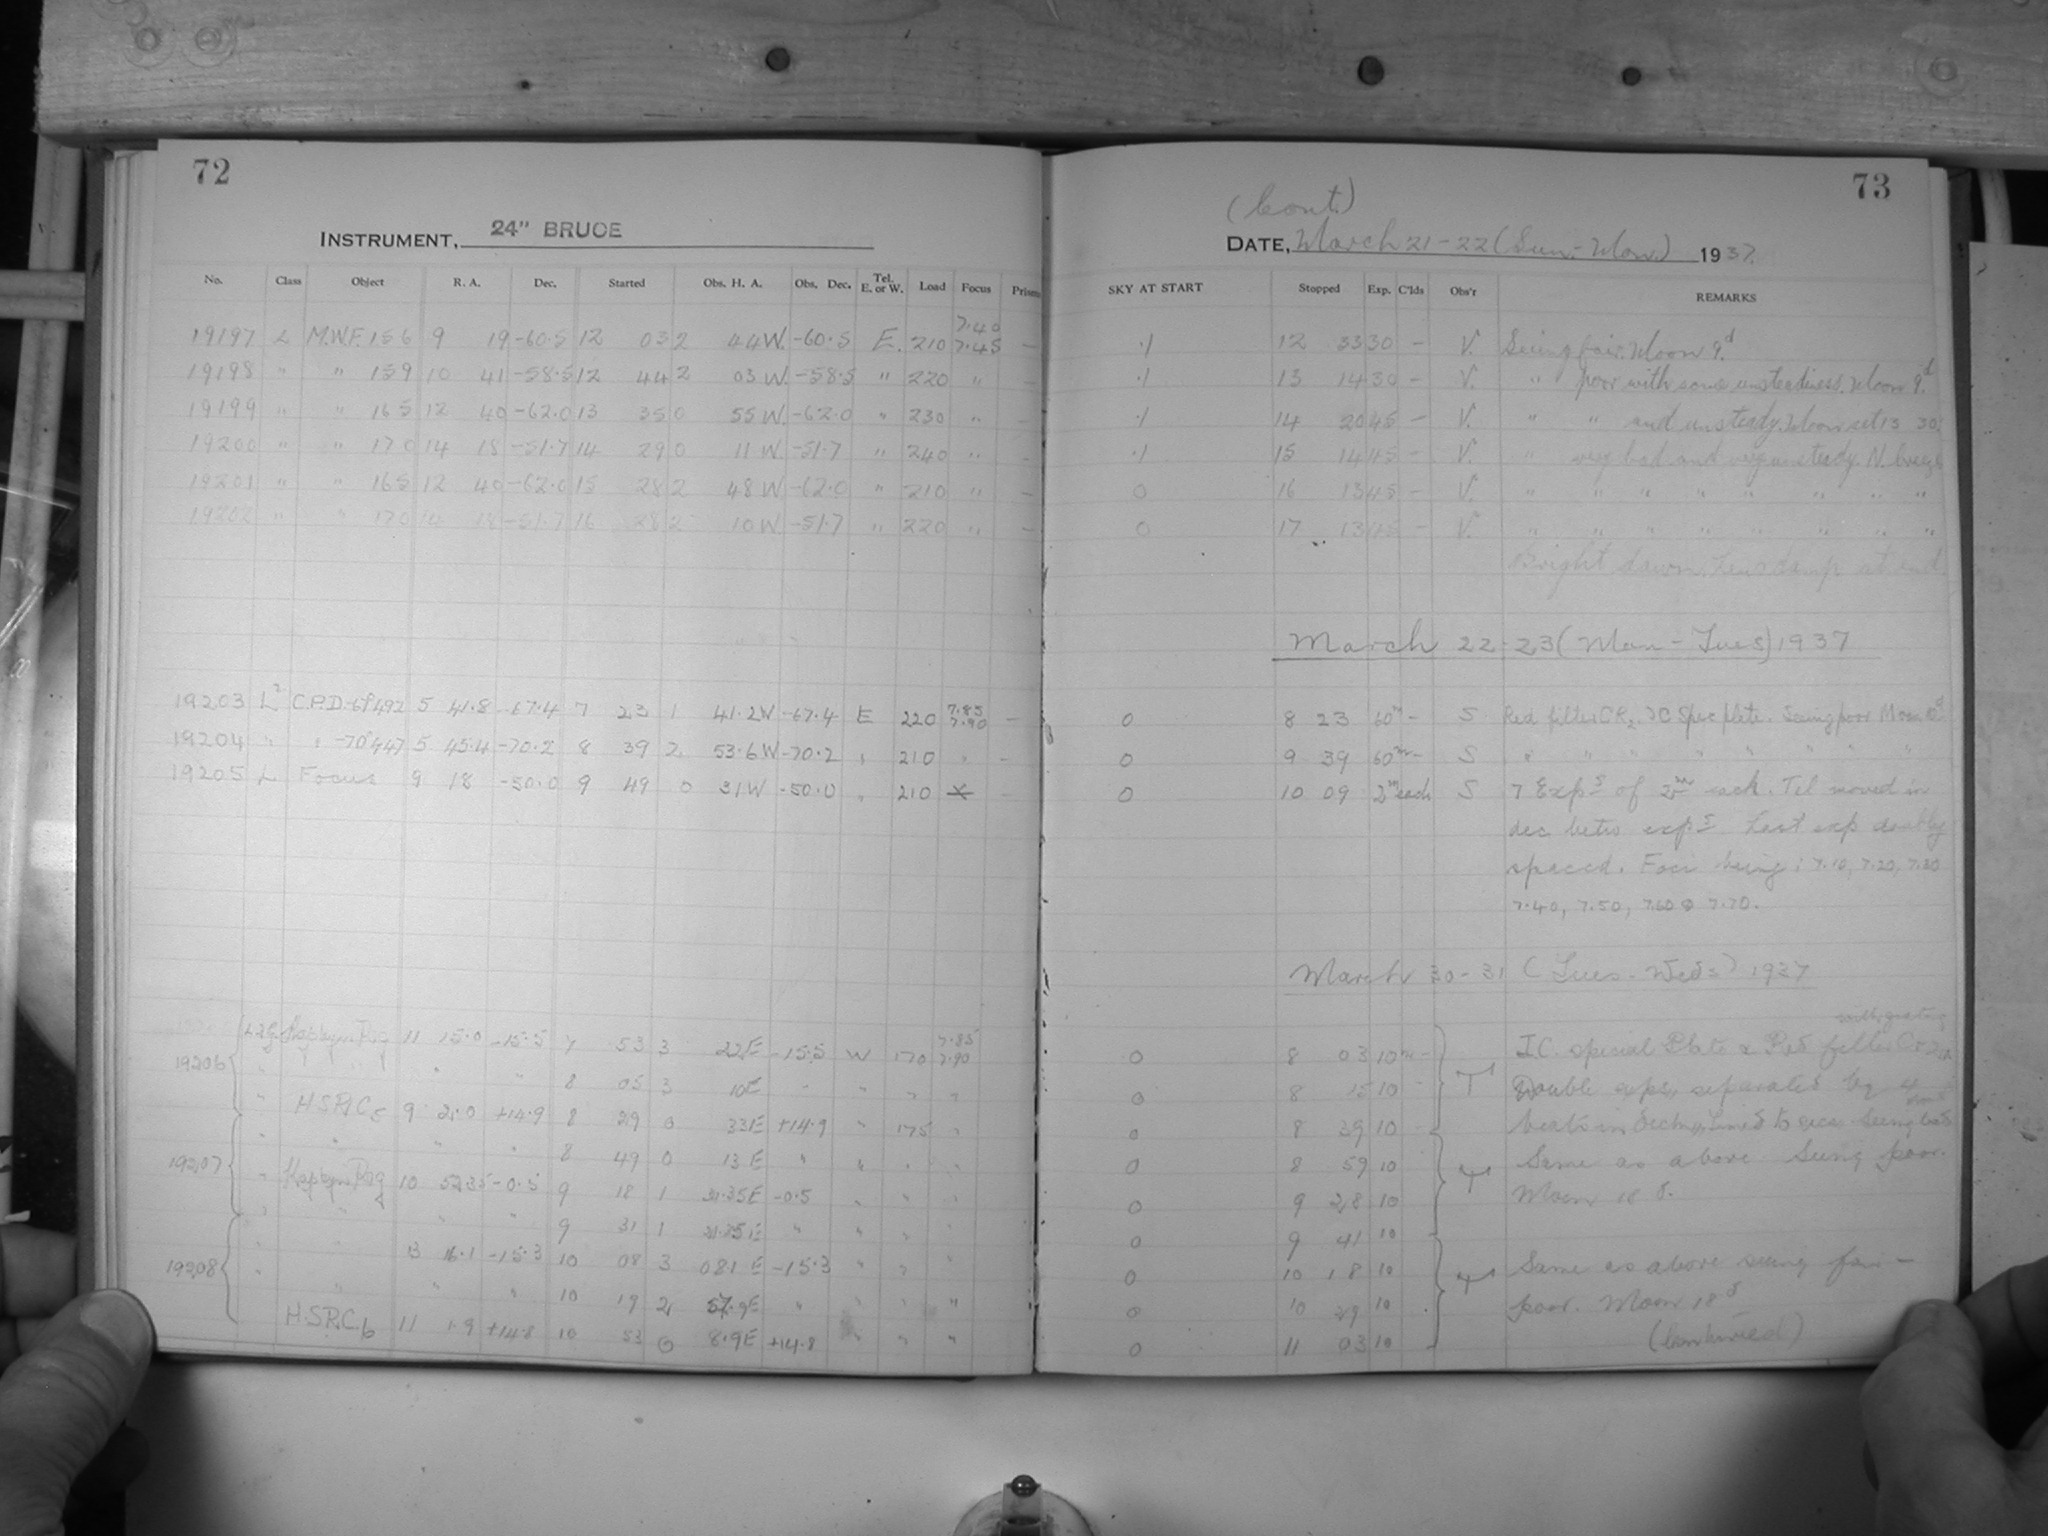 72
INSTRUMENT, 24" BRUCE
No. Class Object R. A. Dec. Started Obs. H. A. Obs. Dec. Tel. E. or W. Load Focus Prism
19197 L M.W.F. 156 9 19 -60.5 12 03 2 44 W. -60.5 E. 210 7.40 7.45 -
19198 " " 159 10 41 -58.5 12 44 2 03 W. -58.5 " 220 " -
19199 " " 165 12 40 -62.0 13 35 0 55 W. -62.0 " 230 " -
19200 " " 170 14 18 -51.7 14 29 0 11 W. -51.7 " 240 " -
19201 " " 165 12 40 -62.0 15 28 2 48 W -62.0 " 210 " -
19202 " " 170 14 18 -51.7 16 28 2 10 W -51.7 " 220 " -
19203 L² C.P.D. 5 41.8 -67.4 7 23 1 41.2W -67.4 E 220 7.85 7.90 -
19204 " " -70°447 5 45.4 -70.2 8 39 2 53.6 W -70.2 " 210 " -
19205 L Focus 9 18 -50.0 9 49 0 31 W -50.0 " 210 X -
19206 Kapteyn Reg 11 15.0 -15.5 7 53 3 22E -15.5 W 170 7.85 7.90
" " " 8 05 3 10E " " " "
" H.S.P.C5 9 21.0 +14.9 8 29 0 33E +14.9 " 175 "
19207 " " " " 8 49 0 13 E " " " "
" Kapteyn Reg 10 52.35 -0.5 9 18 1 -0.5 " " "
" " " " 9 31 1 " " " "
19208 " 13 16.1 -15.3 10 08 3 08.1 E -15.3 " " "
" " " 10 19 2 57.9E " " " "
H.S.P.C6 11 1.9 +14.8 10 53 0 8.9E +14.8 " " "
73
(Cont.)
DATE, March 21-22 (Sun.-Mon.) 1937.
SKY AT START Stopped Exp. C'lds Obs'r REMARKS
.1 12 33 30 - V. Seeing fair. Moon 9.d
.1 13 14 30 - V. " poor with some unsteadiness. Moon 9.d
.1 14 20 45 - V. " " and unsteady. Moon set 13 30.
.1 15 14 45 - V. " very bad and very unsteady. N. breeze
0 16 13 45 - V. " " " " " " " "
0 17 13 45 - V. " " " " " " " "
Bright dawn. Lens damp at end
March 22-23 (Mon-Tues) 1937
0 8 23 60m - S Red filter CR2 IC Spec plate. Seeing poor Moon
0 9 39 60m - S " " " " " " " "
0 10 09 2m each S 7 Exps of 2m each. Tel moved in
dec betw exps. Last exp doubly
spaced. Foci being: 7.10, 7.20, 7.30
7.40, 7.50, 7.60 & 7.70.
March 30-31 (Tues-Weds) 1937
with grating
0 8 03 10m - I.C. special Plate & Red filter
0 8 15 10 - T Double exps, separated by 4
0 8 39 10 - Seeing bad
0 8 59 10 T Same as above. Seeing poor.
0 9 28 10 Moon 18 d.
0 9 41 10
0 10 18 10 T Same as above seeing fair -
0 10 29 10 poor. Moon 18 d
0 11 03 10 (Continued)